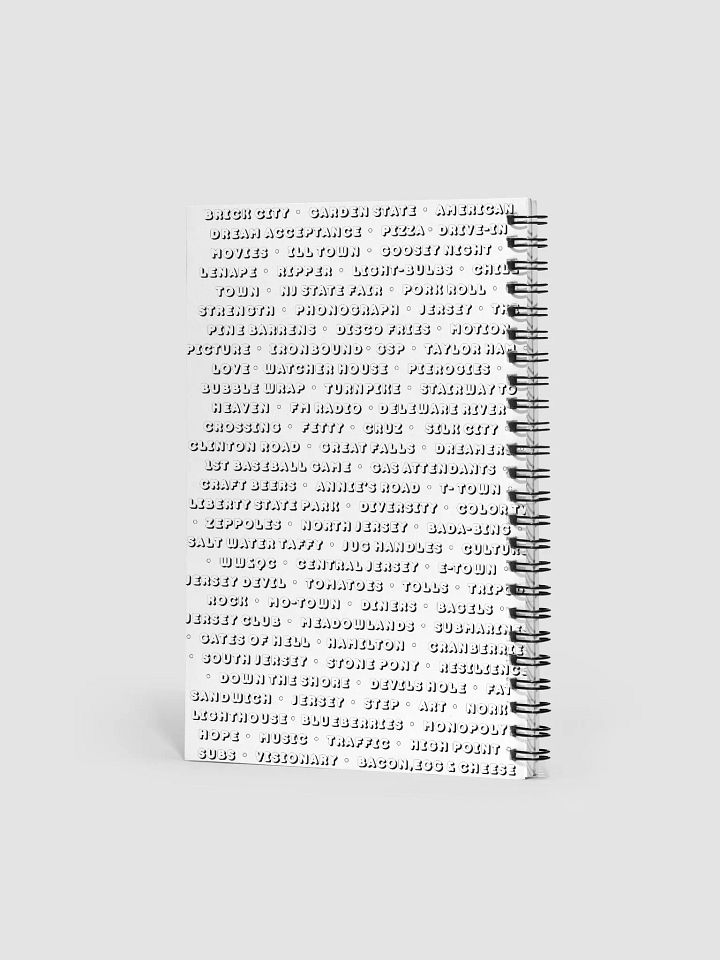 BRICK CITY • GARDEN STATE • AMERICAN
DREAM ACCEPTANCE • PIZZA • DRIVE-IN
MOVIES • ILLTOWN • GOOSEY NIGHT •
LENAPE • RIPPER • LIGHT-BULBS • CHILL
TOWN • NJ STATE FAIR • PORK ROLL •
STRENGTH • PHONOGRAPH • JERSEY • THE
PINE BARRENS • DISCO FRIES • MOTION
PICTURE • IRONBOUND • GSP • TAYLOR HAM
LOVE • WATCHER HOUSE • PIEROGIES •
BUBBLE WRAP • TURNPIKE • STAIRWAY TO
HEAVEN • FM RADIO • DELEWARE RIVER
CROSSING • FETTY • CRUZ • SILK CITY •
CLINTON ROAD • GREAT FALLS • DREAMERS
1ST BASEBALL GAME • GAS ATTENDANTS •
CRAFT BEERS • ANNIE'S ROAD • T-TOWN •
LIBERTY STATE PARK • DIVERSITY • COLOR TV
• ZEPPOLES • NORTH JERSEY • BADA-BING •
SALT WATER TAFFY • JUG HANDLES • CULTURE
• • CENTRAL JERSEY • E-TOWN •
JERSEY DEVIL • TOMATOES • TOLLS • TRIPOD
ROCK • MO-TOWN • DINERS • BAGELS •
JERSEY CLUB • MEADOWLANDS • SUBMARINE
• GATES OF HELL • HAMILTON • CRANBERRIE
• SOUTH JERSEY • STONE PONY • RESILIENCE
• DOWN THE SHORE • DEVILS HOLE • FAT
SANDWICH • JERSEY • STEP • ART • NORK
LIGHTHOUSE • BLUEBERRIES • MONOPOLY
HOPE • MUSIC • TRAFFIC • HIGH POINT •
SUBS • VISIONARY • BACON, EGG & CHEESE